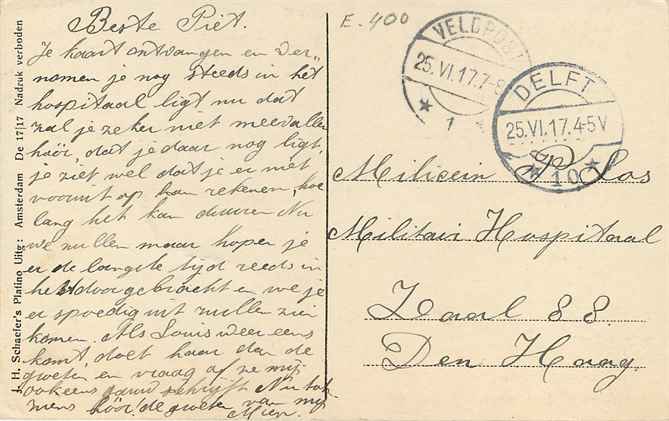 E.-400
Beste Piet.
Je kaart ontvangen en ver-
nomen je nog steeds in het
hospitaal ligt nu dat
zal je zeker niet meevallen
hoor, dat je daar nog ligt,
je ziet wel dat je er niet
vooruit op kan rekenen, hoe
lang het kan duuren Nu
we zullen maar hopen je
er de langste tijd reeds in
hebt doorgebracht en we je
er spoedig uit zullen zien
komen. Als Louis weer eens
komt doet haar dan de
groeten en vraag of ze mij
ook eens gauw schrijft. Nu tot
ziens hoor! de groeten van mij
Mien.
J. H. Schaefer's Platino Uitg: Amsterdam De 17|17 Nadruk verboden
VELDPOST
25.VI.17.7-8
1
DELFT
25.VI.17.4-5V
10
Milicien P. Los
Militair Hospitaal
Zaal 88.
Den Haag.